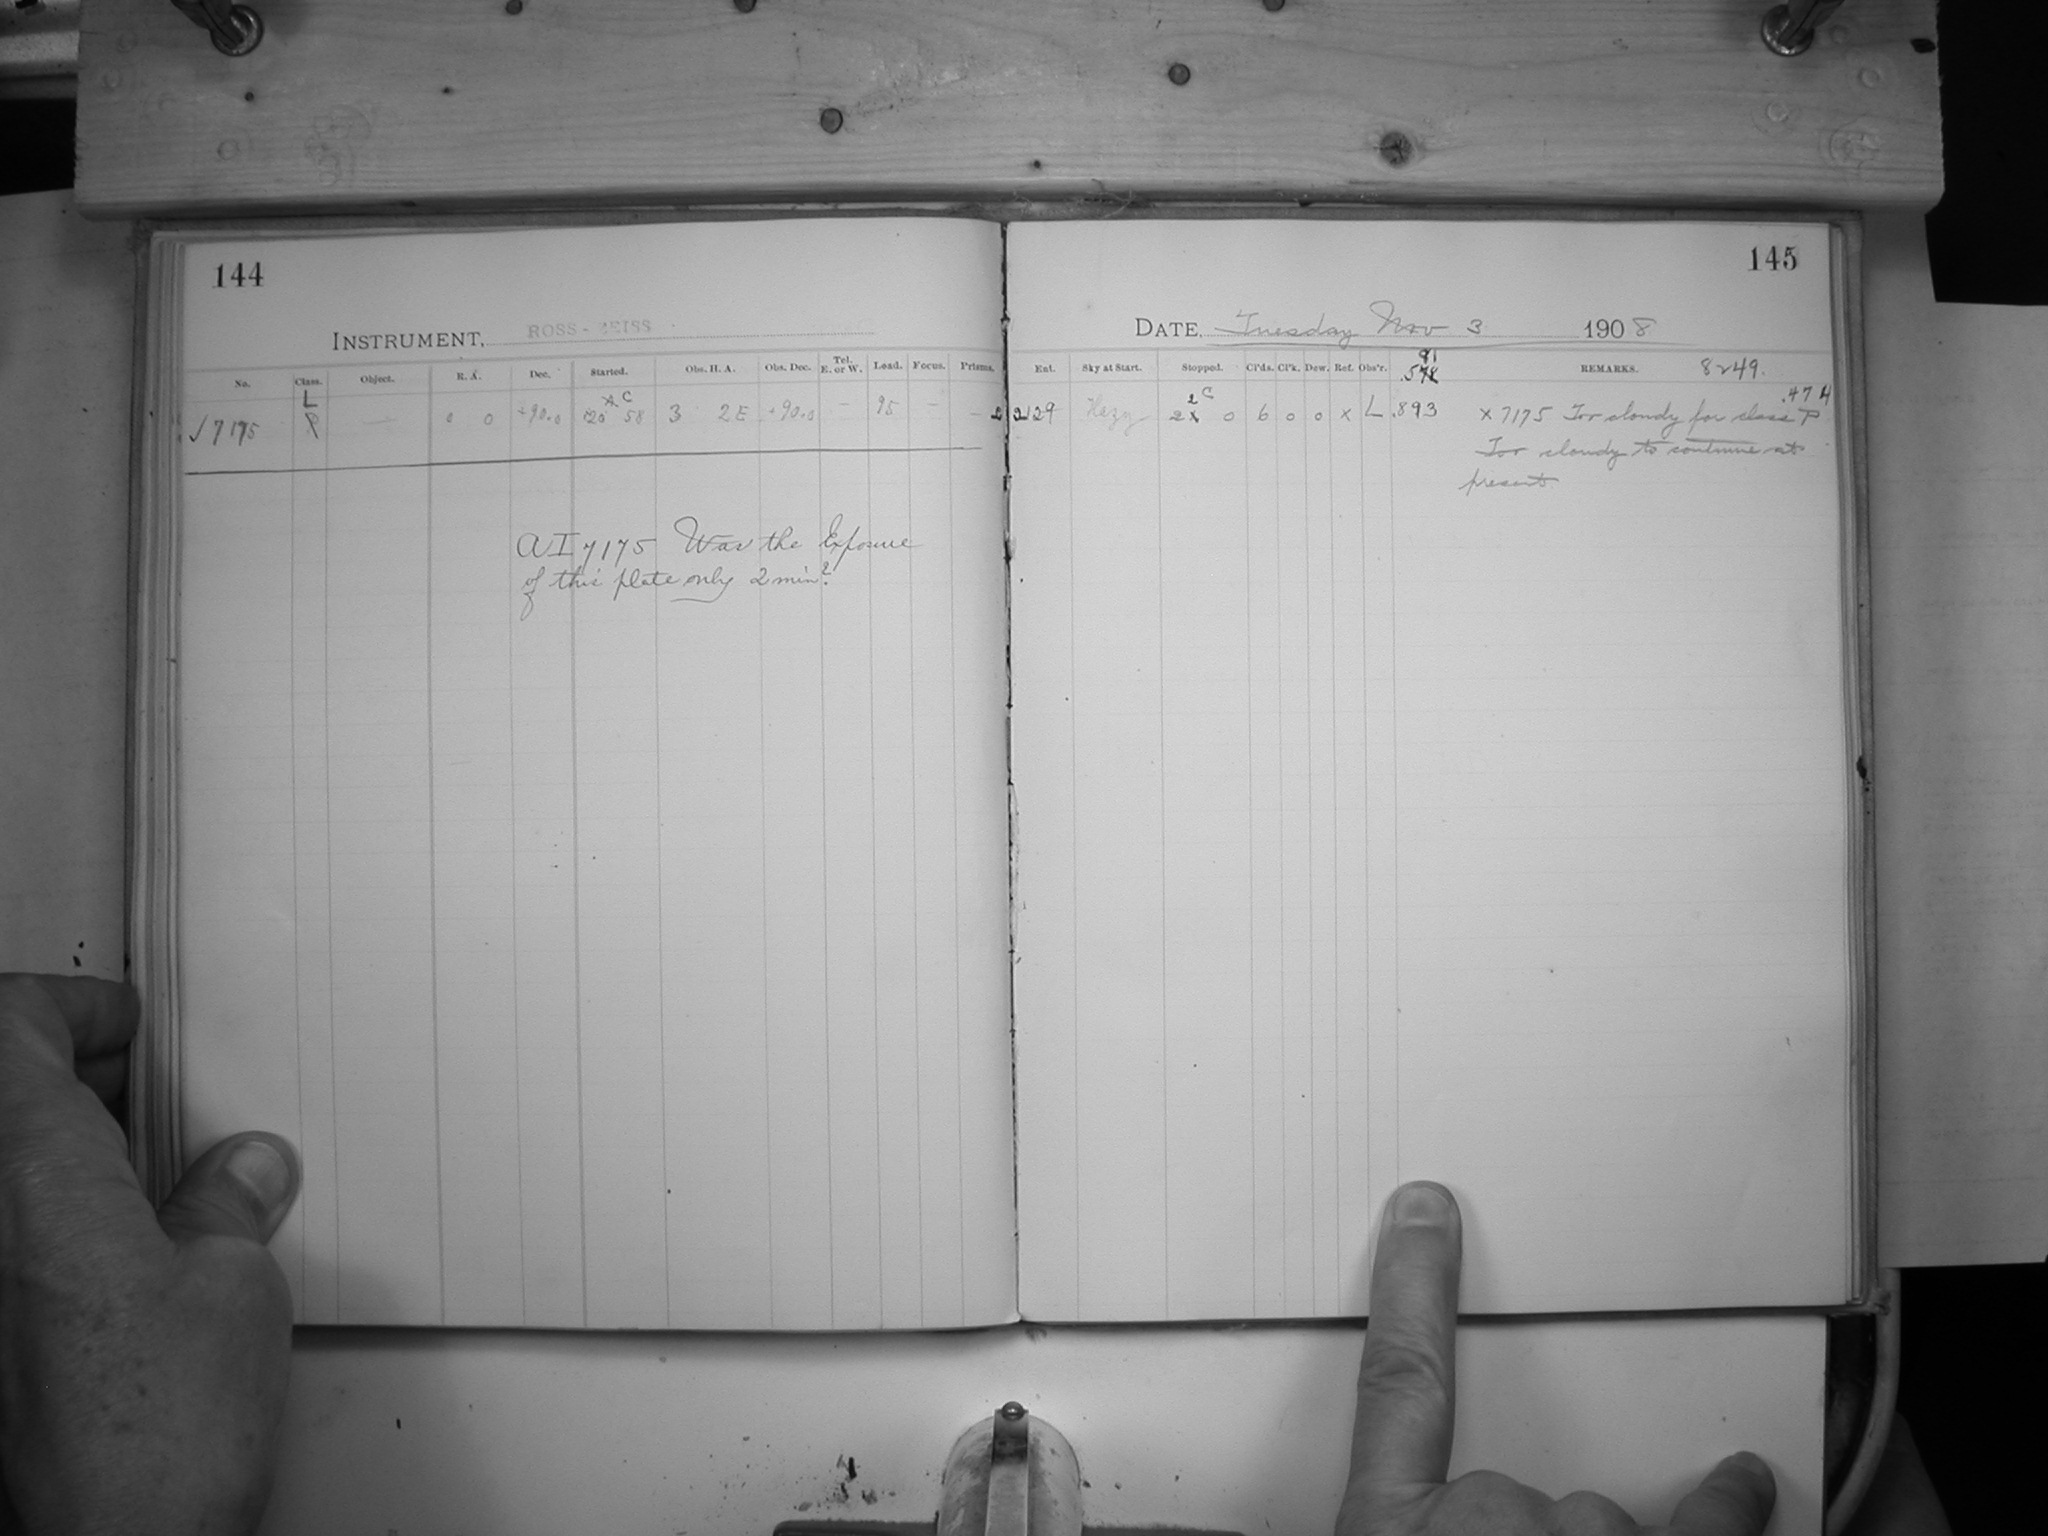 144
INSTRUMENT, ROSS-ZEISS
No. Class. Object. R. A. Dec. Started. Obs. H. A. Obs. Dec. Tel. E. or W. Lead. Focus. Prisms.
L
C
√ 7175 P — 0 0 +90.0 20 58 3 2 E +90.0 — 95 — —
AI 7175 Was the Exposure
of this plate only 2 min?
145
DATE, Tuesday Nov 3 1908
91
Ent. Sky at Start. Stopped. Cl'ds. Cl'k. Dew. Ref. Obs'r. REMARKS. 8249.
2 C
.474
2129 Hazy 0 6 0 0 x L .893 x 7175 Too cloudy for class P
Too cloudy to continue at
present